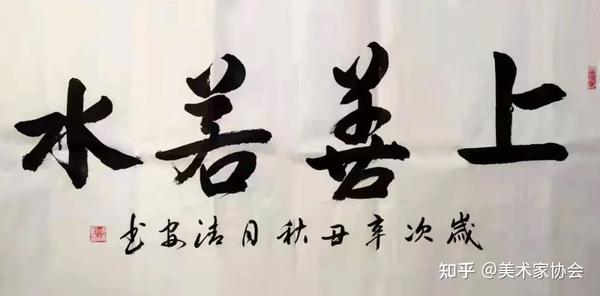 上善若水
岁次辛丑秋月清安书
知乎 @美术家协会